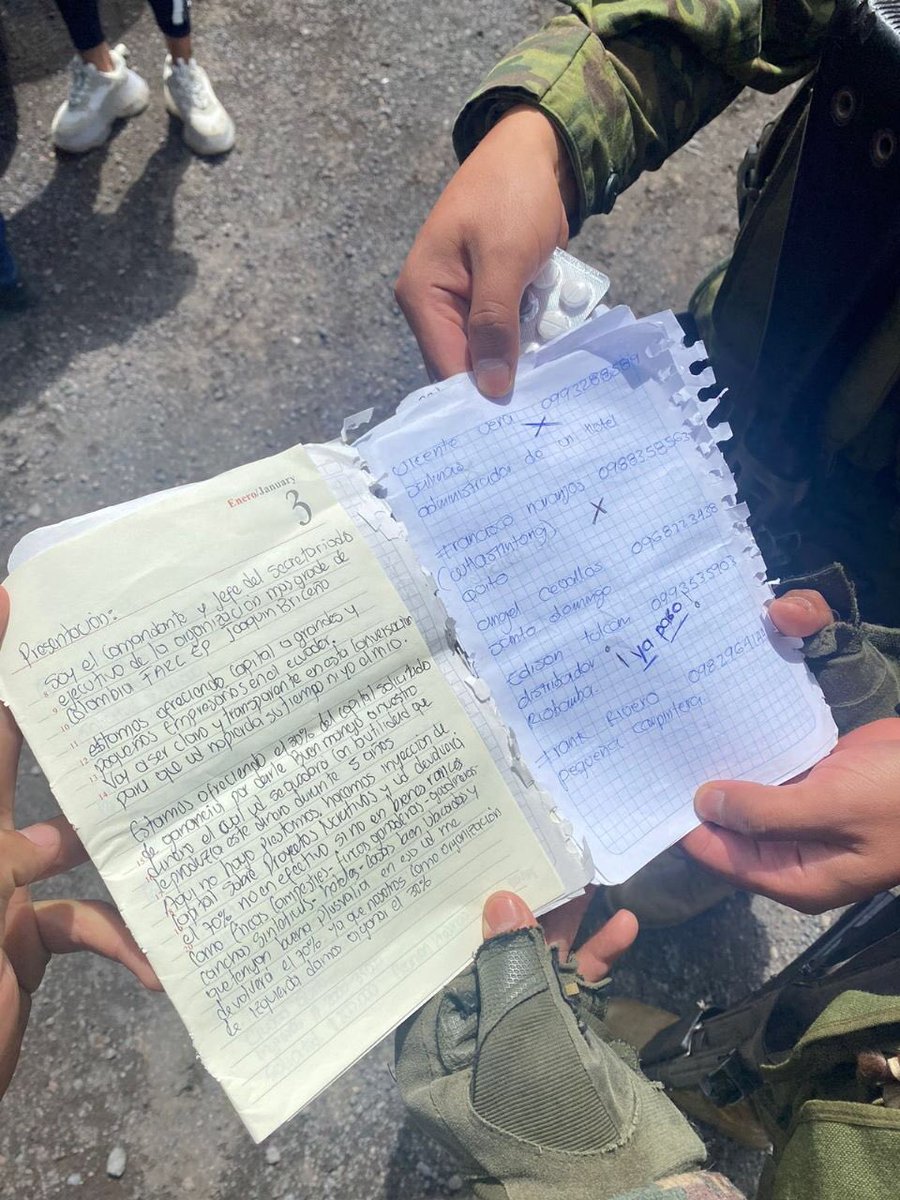 Enero/January
3
Presentación:
Soy el comandante y jefe del secretariado
ejecutivo de la organización mas grade de
Colombia FARC EP Joaquin Briceño
estamos ofreciendo capital a grandes y
pequeños Empresarios en el ecuador.
Voy a ser claro y transparente en esta conversación
para que ud no pierda su tiempo ni yo al mio.
Estamos ofreciendo el 30% del capital solicitado
de ganancia por darle buen manejo a nuestro
dinero el cual ud se quedara con la utilidad que
le produzca este dinero durante 5 años
Aqui no hayo prestamos, hacemos inyeccion de
capital sobre Proyectos lucrativos y ud devolveria
el 70% no en efectivo si no en bienes raices
como fincas Campestres - fincas ganaderas -
canchas sinteticas - hoteles - casas bien ubicadas y
que tengan buena plusvalia en eso ud me
devolvera el 70% ya que nosotros como organización
de izquierda damos a ganar el 30%
Vicente Vera 0993288589
X
administrador de un hotel
Francisco naranjos 098835856
X
Quito
angel ceballos 0968773438
santo domingo
Edison tulcan 0993535903
distribuidor
¡ ya paso.
Riobamba.
Frank Rivero
pequeña carpinteria